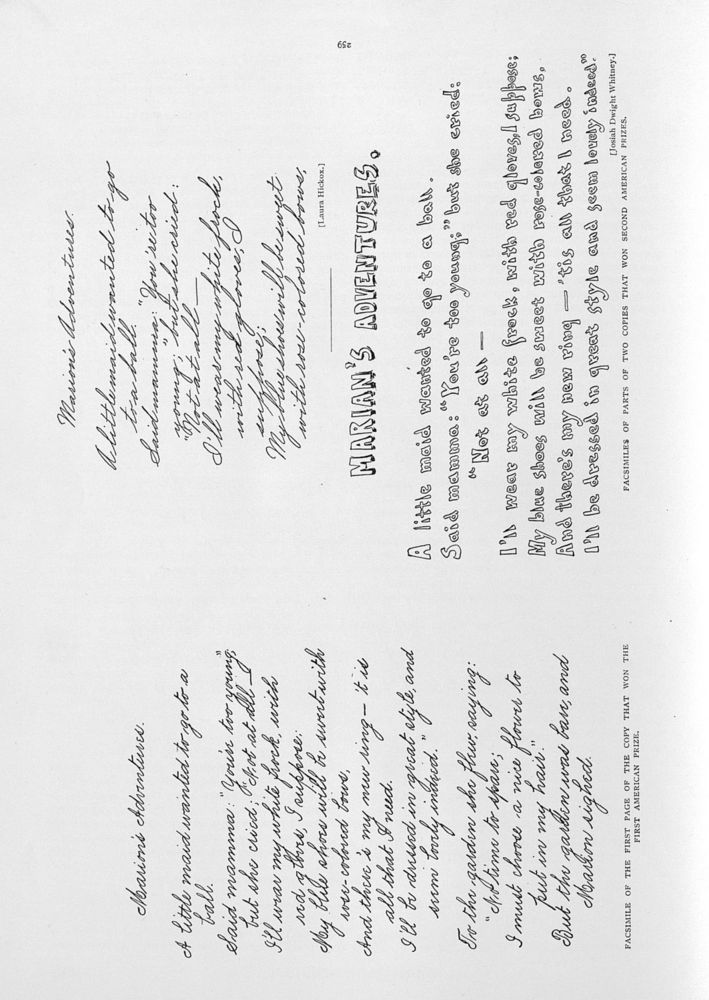 Marion's Adventures.
A little maid wanted to go to a
ball.
Said mamma: "You're too young,"
but she cried; "Not at all—
I'll wear my white frock, with
red gloves, I suppose;
My blue shoes will be sweet with
rose-colored bows,
And there is my new ring—'t is
all that I need.
I'll be dressed in great style, and
seem lovely indeed."
To the garden she flew, saying:
"No time to spare;
I must choose a nice flower to
put in my hair."
But the garden was bare, and
Marion sighed.
FACSIMILE OF THE FIRST PAGE OF THE COPY THAT WON THE
FIRST AMERICAN PRIZE.
Marion's Adventures.
A little maid wanted to go
to a ball.
Said mamma: "You're too
young;" but she cried:
"Not at all—
I'll wear my white frock,
with red gloves I
suppose;
My blue shoes will be sweet
with rose-colored bows,
[Laura Hickox.]
MARIAN'S ADVENTURES.
A little maid wanted to go to a ball.
Said mamma: "You're too young;" but she cried:
"Not at all —
I'll wear my white frock, with red gloves, I suppose;
My blue shoes will be sweet with rose-colored bows,
And there's my new ring — 'tis all that I need.
I'll be dressed in great style and seem lovely indeed."
[Josiah Dwight Whitney.]
FACSIMILES OF PARTS OF TWO COPIES THAT WON SECOND AMERICAN PRIZES.
259